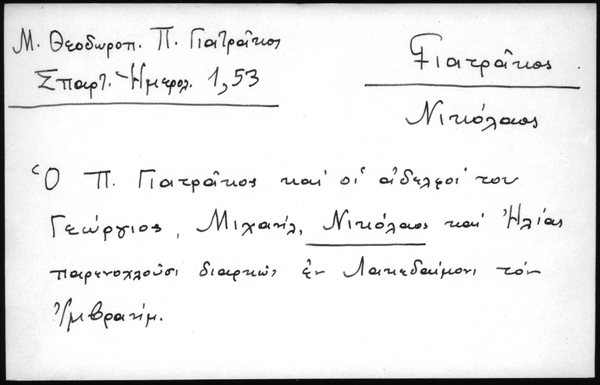 Μ. Θεοδωροπ. Π. Γιατρᾶκος
Σπαρτ. Ἡμερολ. 1,53
Γιατρᾶκος
Νικόλαος
Ὁ Π. Γιατρᾶκος καί οἱ ἀδελφοί του
Γεώργιος, Μιχαήλ, Νικόλαος καί Ἠλίας
παρενοχλοῦσι διαρκῶς ἐν Λακεδαίμονι τόν
Ἰμβραήμ.